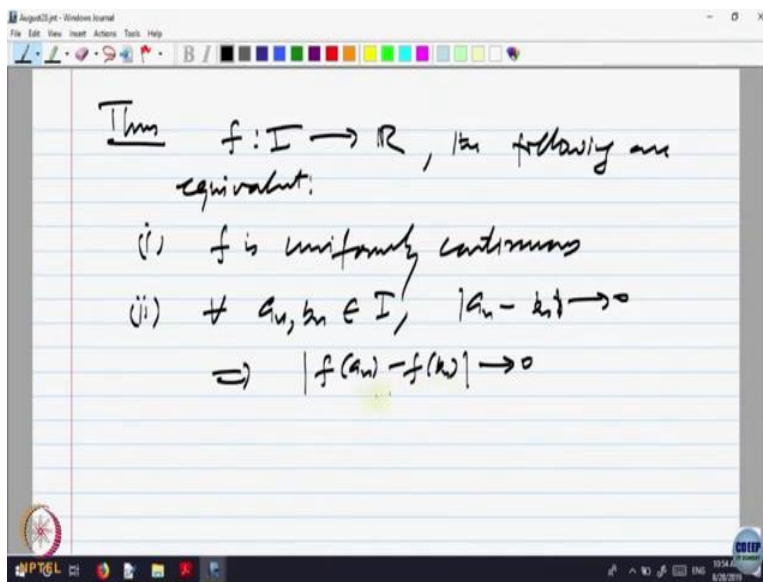 August28.jnt - Windows Journal
File Edit View Insert Actions Tools Help
B I
Thm f : I → R, the following are
equivalent:
(i) f is uniformly continuous
(ii) ∀ aₙ, bₙ ∈ I, |aₙ - bₙ| → 0
⇒ |f(aₙ) - f(bₙ)| → 0
NPTEL
CDEEP
ENG
8/28/2019